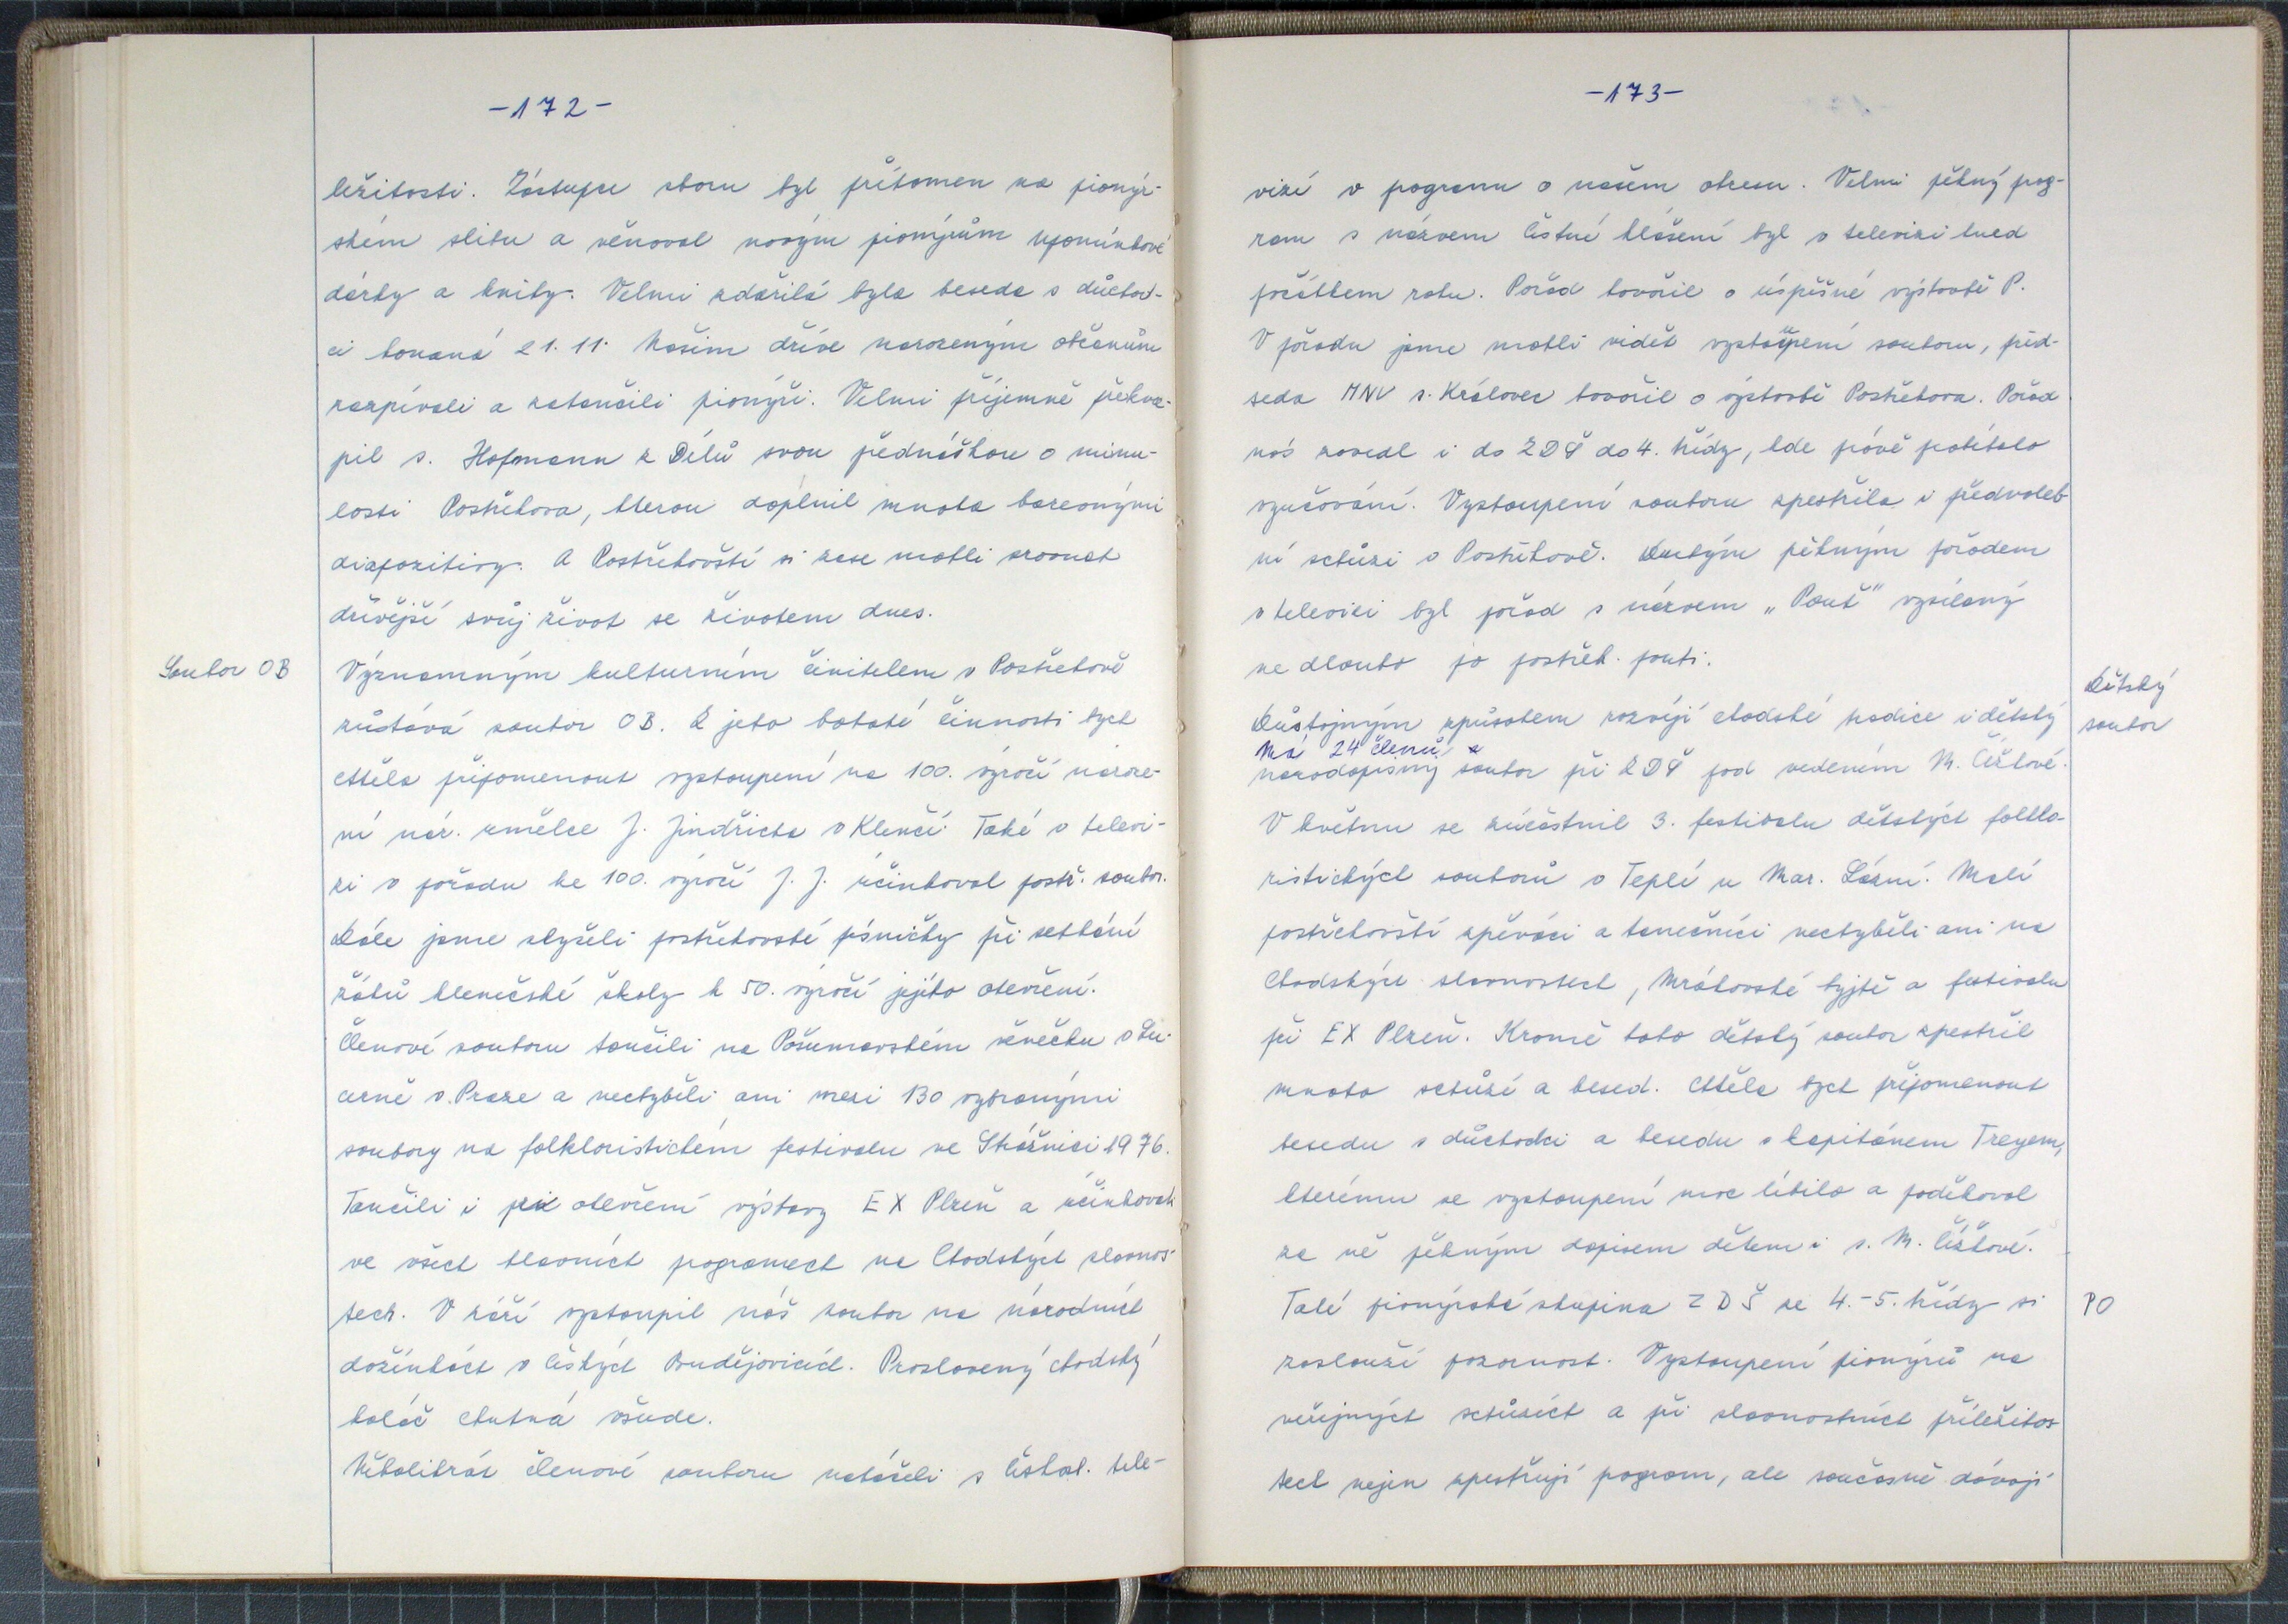 -172-
ležitosti. Zástupce sboru byl přítomen na pionýr-
ském slibu a věnoval novým pionýrům upomínkové
dárky a knihy. Velmi zdařilá byla beseda s důchod-
ci konaná 21.11. Našim dříve narozeným občanům
zazpívali a zatančili pionýři. Velmi příjemně překva-
pil s. Hofmann z Dílů svou přednáškou o minu-
losti Postřekova, kterou doplnil mnoha barevnými
diapozitivy. A Postřekovští si zase mohli srovnat
dřívější svůj život se životem dnes.
Soubor OB
Významným kulturním činitelem v Postřekově
zůstává soubor OB. Z jeho bohaté činnosti bych
chtěla připomenout vystoupení na 100. výročí naroze-
ní nár. umělce J. Jindřicha v Klenčí. Také v televi-
zi v pořadu ke 100. výročí J. J. účinkoval postř. soubor.
Dále jsme slyšeli postřekovské písničky při setkání
žáků klenečské školy k 50. výročí jejího otevření.
Členové souboru tančili na Pošumavském věnečku v Lu-
cerně v Praze a nechyběli ani mezi 130 vybranými
soubory na folkloristickém festivalu ve Strážnici 1976.
Tančili i při otevření výstavy EX Plzeň a účinkovali
ve všech hlavních programech na Chodských slavnos-
tech. V září vystoupil náš soubor na národních
dožínkách v Českých Budějovicích. Proslavený chodský
koláč chutná všude.
Několikrát členové souboru natáčeli s českosl. tele-
-173-
vizí v pogramu o našem okresu. Velmi pěkný prog-
ram s názvem Čestné hlášení byl v televizi hned
počátkem roku. Pořad hovořil o úspěšné výstavbě P.
V pořadu jsme mohli vidět vystoupení souboru, před-
seda MNV s. Královec hovořil o výstavbě Postřekova. Pořad
nás zavedl i do ZDŠ do 4. třídy, kde právě probíhalo
vyučování. Vystoupení souboru zpestřila i předvoleb-
ní schůzi v Postřekově. Druhým pěkným pořadem
v televizi byl pořad s názvem „Pouť" vysílaný
ne dlouho po postřek. pouti.
Dětský
soubor
Důstojným způsobem rozvíjí chodské tradice i dětský
Má 24 členů
národopisný soubor při ZDŠ pod vedením M. Čížkové.
V květnu se zúčastnil 3. festivalu dětských folklo-
ristických souborů v Teplé u Mar. Lázní. Malí
postřekovští zpěváci a tanečníci nechyběli ani na
Chodských slavnostech, Mrákovské hyjtě a festivalu
při EX Plzeň. Kromě toho dětský soubor zpestřil
mnoho schůzí a besed. Chtěla bych připomenout
besedu s důchodci a besedu s kapitánem Treyem,
kterému se vystoupení moc líbilo a poděkoval
za ně pěkným dopisem dětem i s. M. Čížkové.
PO
Také pionýrská skupina ZDŠ ze 4.-5. třídy si
zaslouží pozornost. Vystoupení pionýrů na
veřejných schůzích a při slavnostních příležitos-
tech nejen zpestřují pogram, ale současně dávají